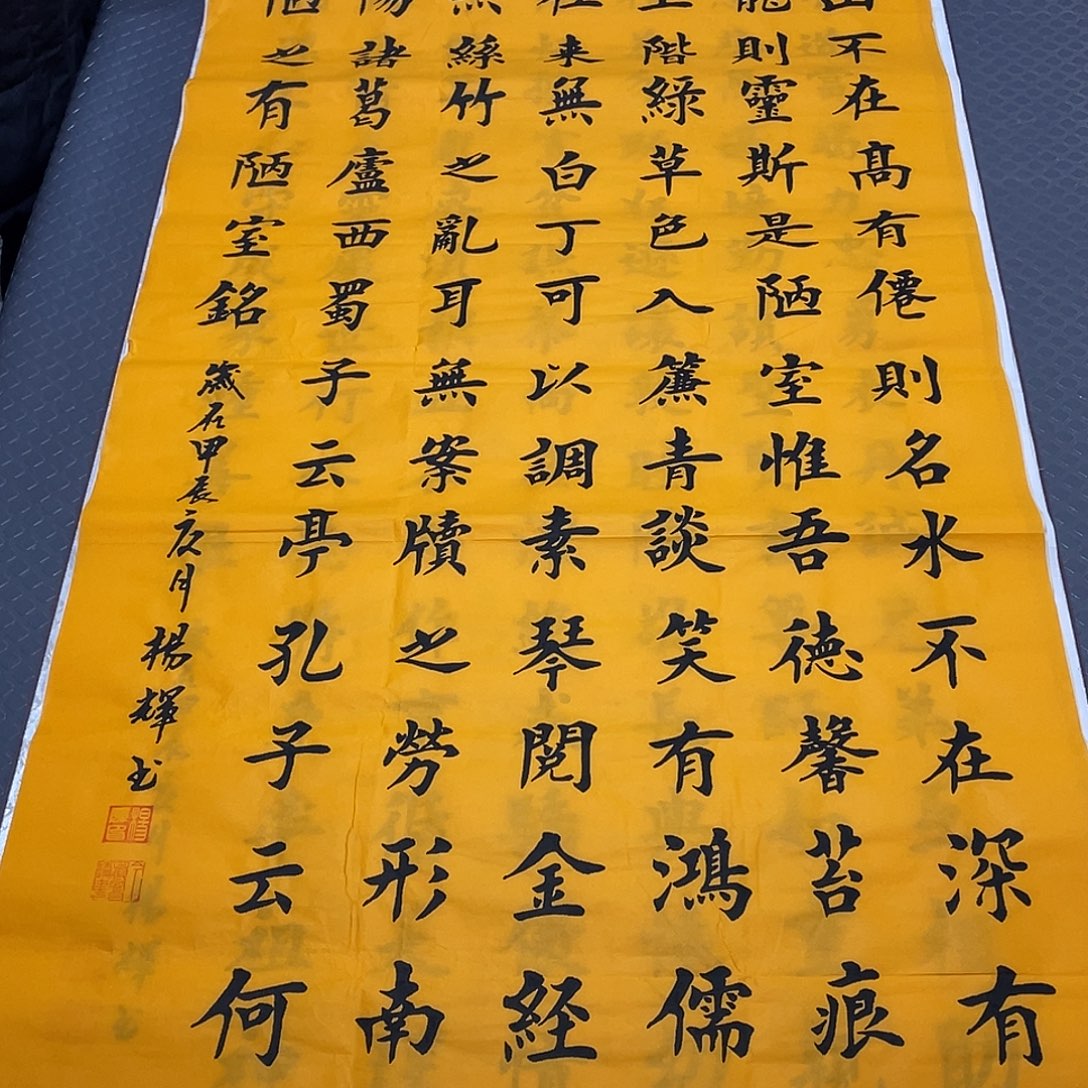 山不在髙有僊則名水不在深有
龍則靈斯是陋室惟吾徳馨苔痕
上階綠草色入簾青談笑有鴻儒
往来無白丁可以調素琴閱金経
無絲竹之亂耳無案牘之勞形南
陽諸葛廬西蜀子云亭孔子云何
陋之有陋室銘
歲在甲辰夏月楊輝书